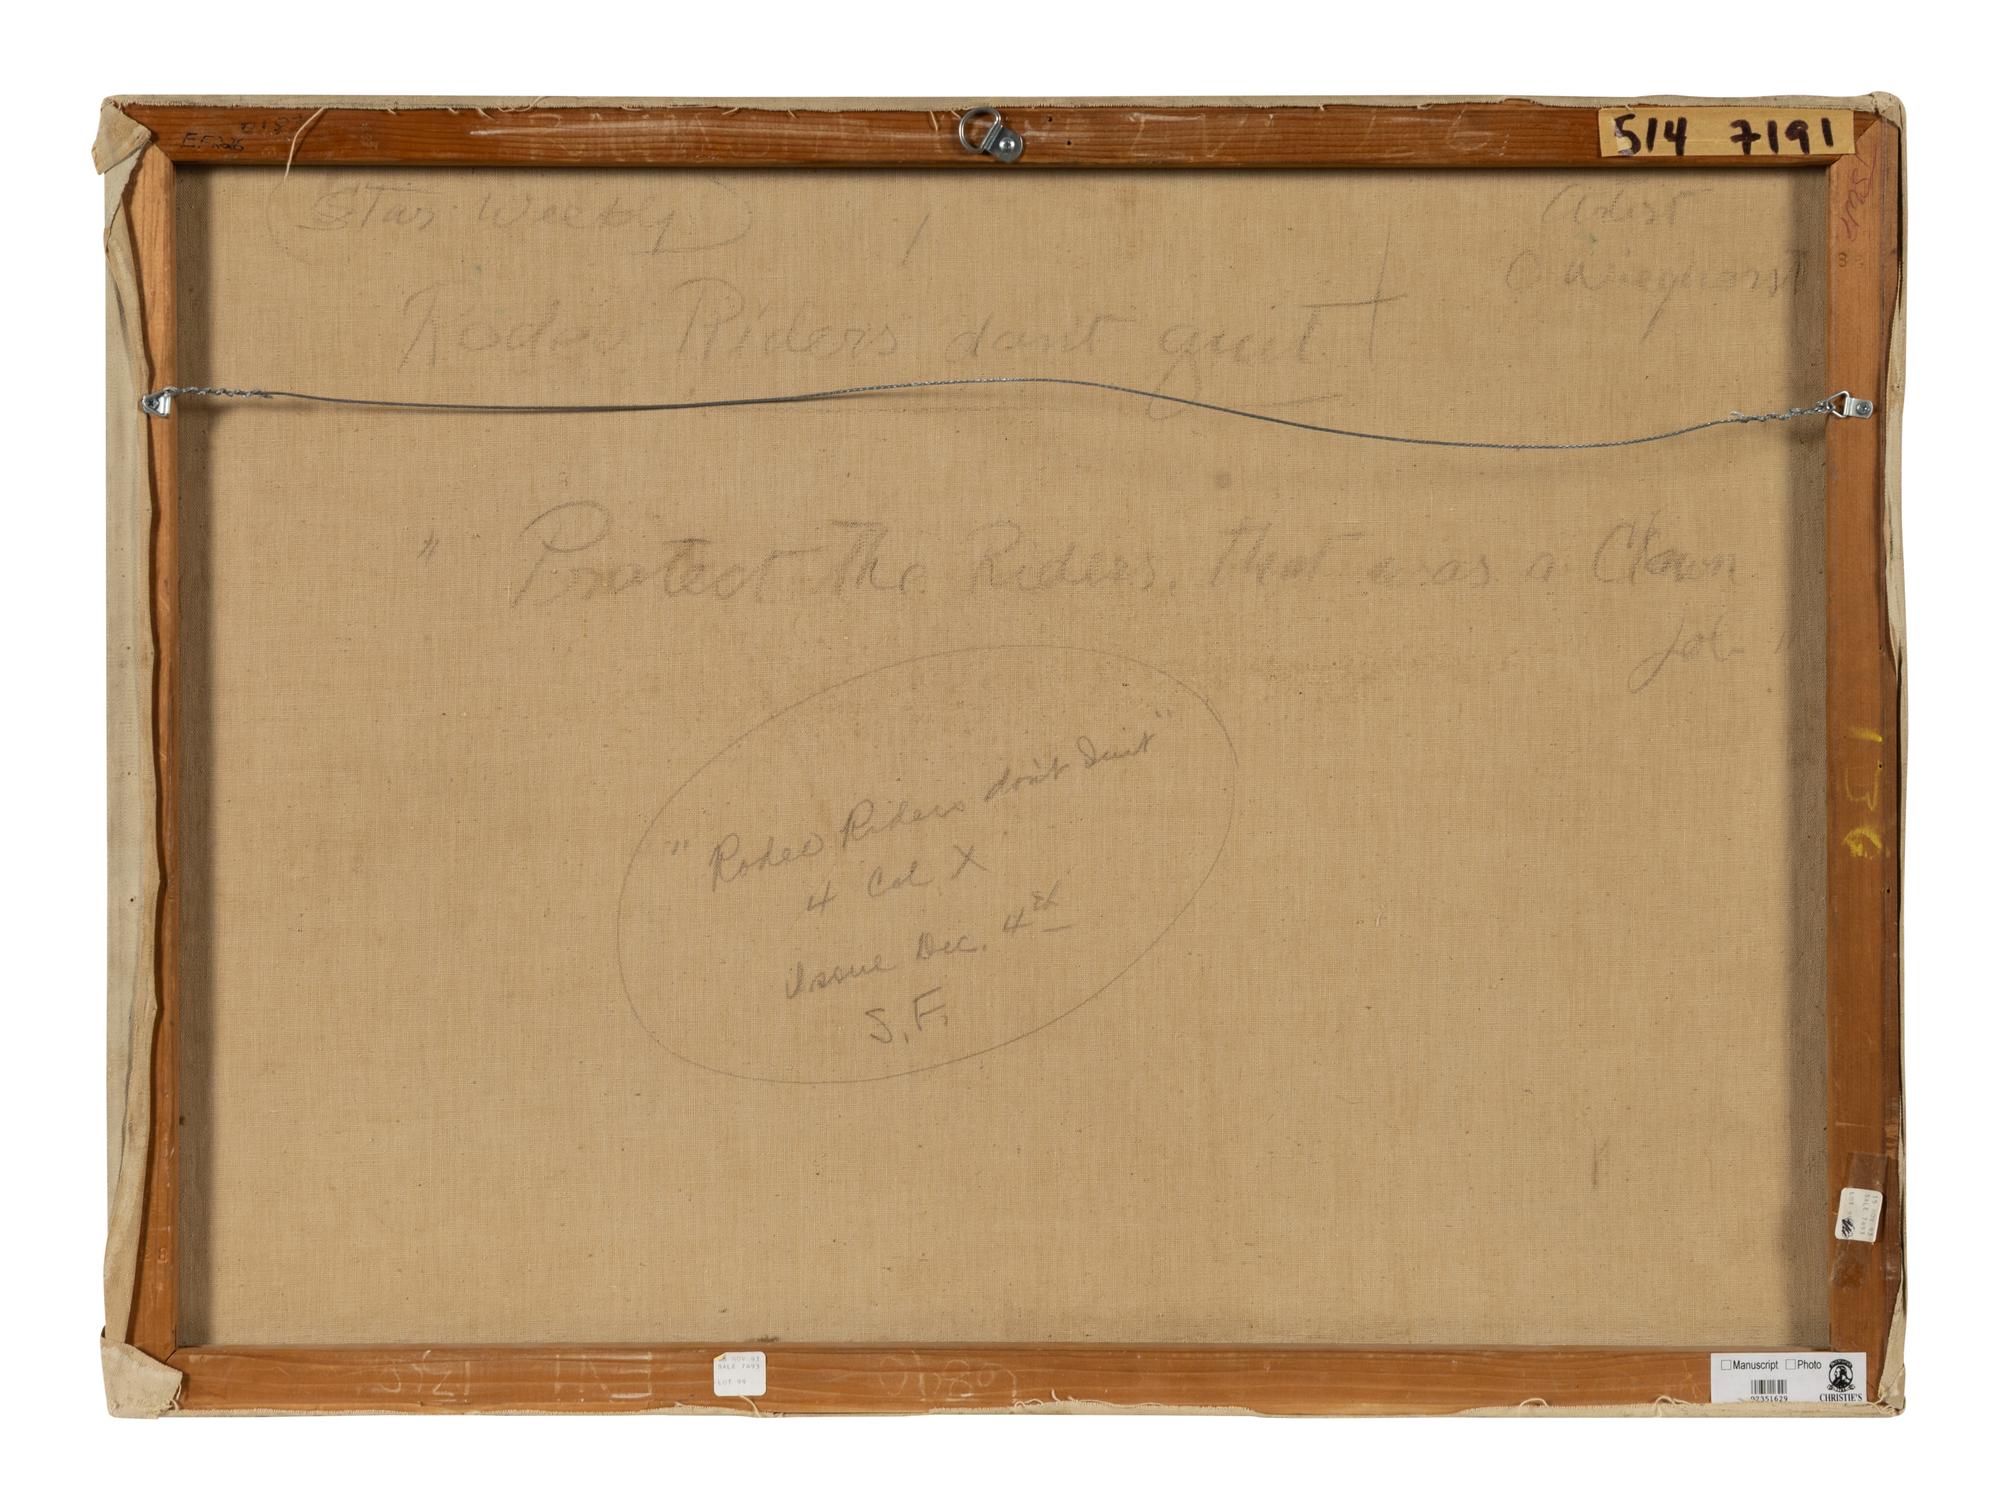 514 7191
Star Weekly
Artist
O Wieghorst
Rodeo Riders don't quit!
" Protect The Riders, that was a Clown
Job
"Rodeo Riders don't Quit"
4 Col X
Issue Dec. 4th
S.F.
SALE 7693
LOT 99
Manuscript Photo
02351629
CHRISTIE'S